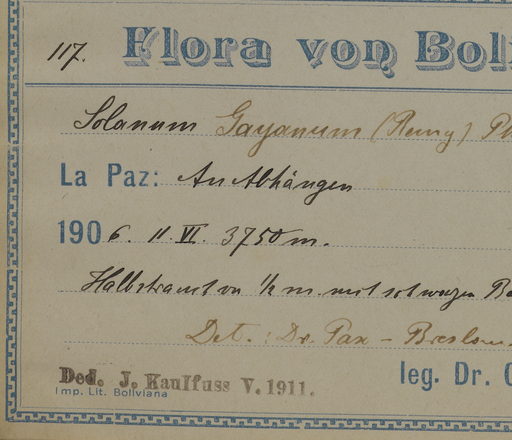 117. Flora von Bol
Solanum Gayanum (Remy) Ph
La Paz: An Abhängen
1906. 11. VI. 3750 m.
Halbstrauch von ½ m. mit schwarzen Be
Det.: Dr. Pax - Breslau
Ded. J. Kaulfuss V. 1911. leg. Dr.
Imp. Lit. Boliviana